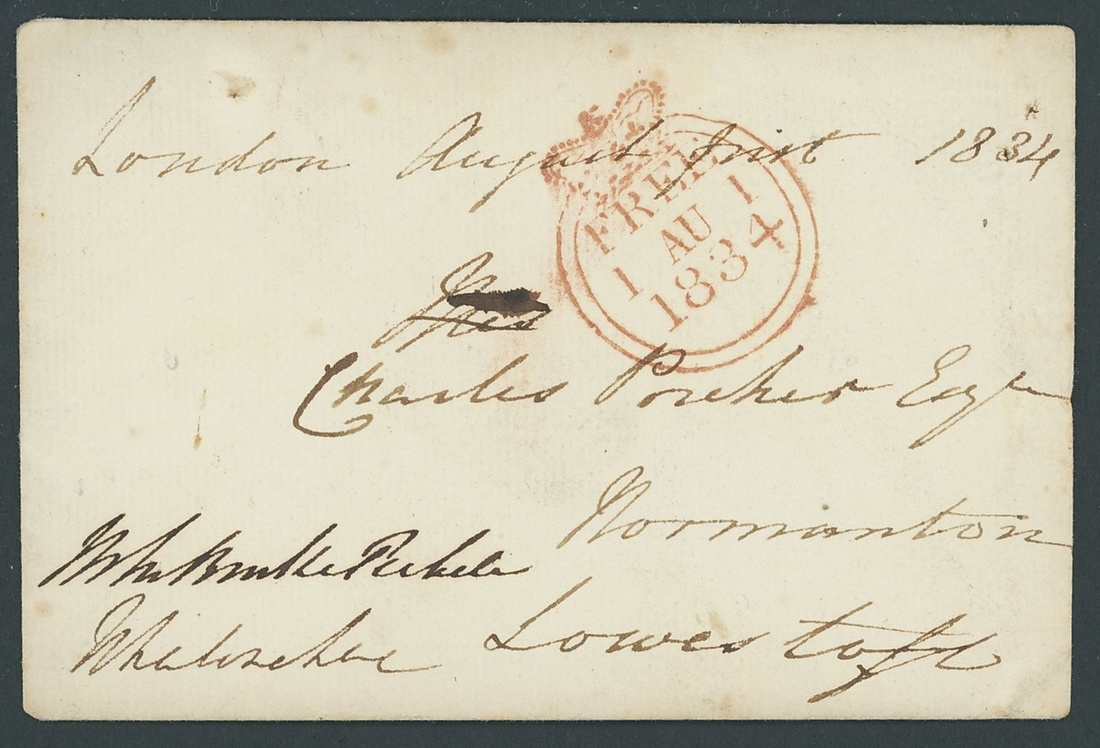 London August first 1834
FREE
1 AU 1
1834
Charles Porcher Esqr
Normanton
Lowestoft